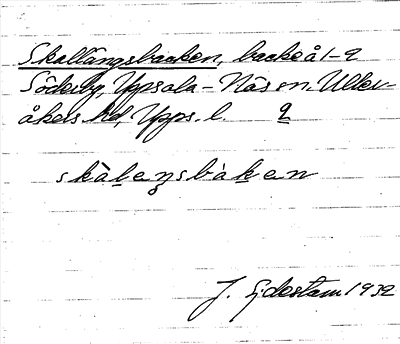 Skallängsbacken, backe å 1-9
Söderby, Uppsala-Näs sn. Uller-
åkers hd, Upps. l. 9
skàleŋsbàken
J. Eidestam 1932